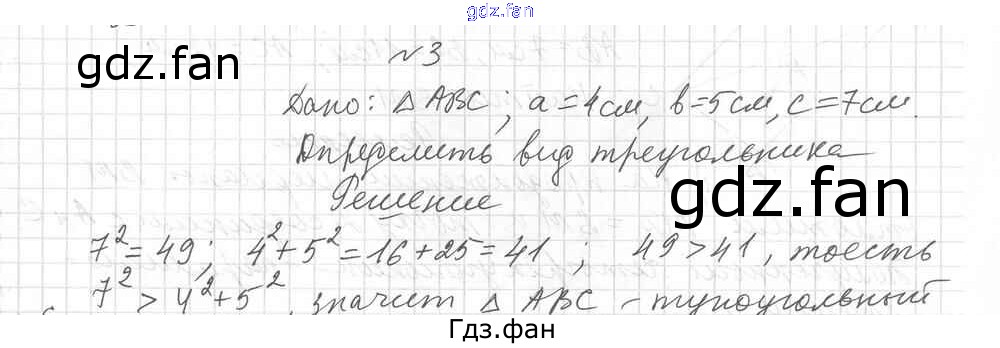 gdz.fan
№3
gdz.fan
Дано: △ABC; a=4см, в=5см, c=7см.
Определить вид треугольника
gdz.fan
Решение
7²=49; 4²+5²=16+25=41 ; 49>41, тоесть
7²>4²+5², значит △ ABC - тупоугольный
Гдз.фан